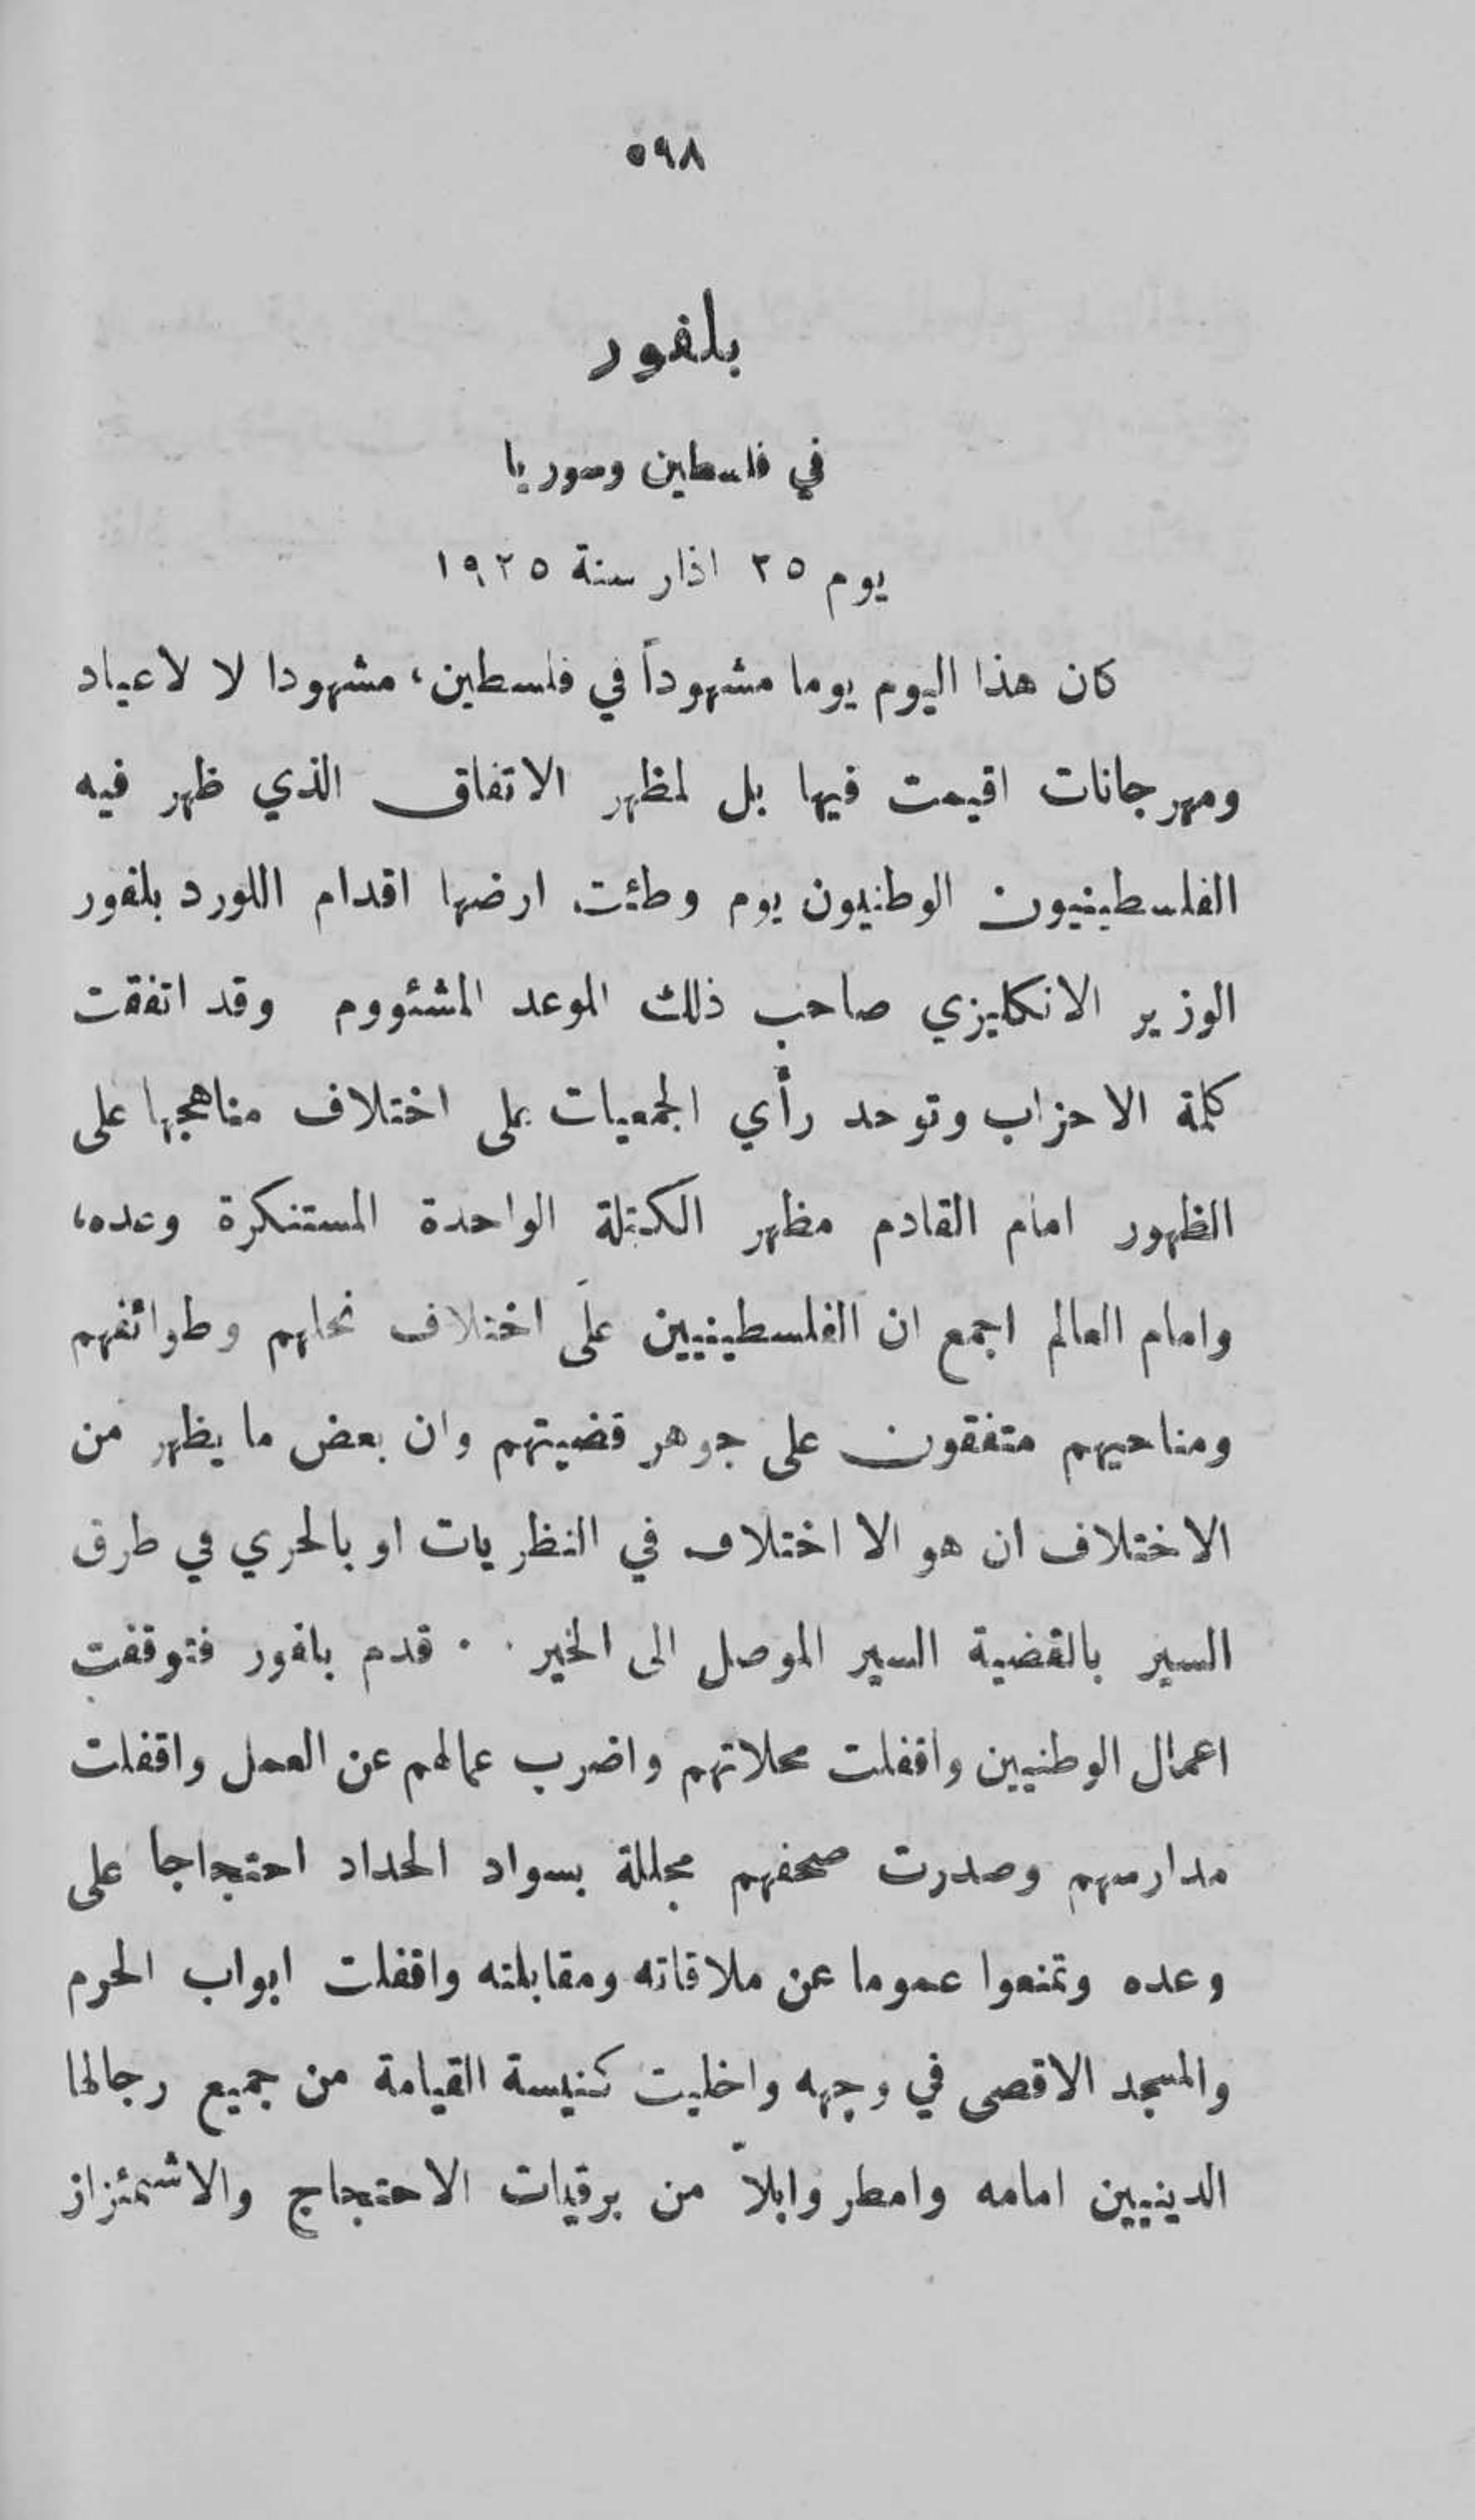 ٥٩٨
بلفور
في فلسطين وسوريا
يوم ٢٥ اذار سنة ١٩٢٥
كان هذا اليوم يوما مشهوداً في فلسطين، مشهودا لا لاعياد
ومهرجانات اقيمت فيها بل لمظهر الاتفاق الذي ظهر فيه
الفلسطينيون الوطنيون يوم وطئت ارضها اقدام اللورد بلفور
الوزير الانكليزي صاحب ذلك الوعد المشئووم وقد اتفقت
كلمة الاحزاب وتوحد رأي الجمعيات على اختلاف مناهجها على
الظهور امام القادم مظهر الكتلة الواحدة المستنكرة وعده،
وامام العالم اجمع ان الفلسطينيين على اختلاف نحلهم وطوائفهم
ومناحيهم متفقون على جوهر قضيتهم وان بعض ما يظهر من
الاختلاف ان هو الا اختلاف في النظريات او بالحري في طرق
السير بالقضية السير الموصل الى الخير . . قدم بلفور فتوقفت
اعمال الوطنيين واقفلت محلاتهم واضرب عمالهم عن العمل واقفلت
مدارسهم وصدرت صحفهم مجللة بسواد الحداد احتجاجا على
وعده وتمنعوا عموما عن ملاقاته ومقابلته واقفلت ابواب الحرم
والمسجد الاقصى في وجهه واخليت كنيسة القيامة من جميع رجالها
الدينيين امامه وامطر وابلاً من برقيات الاحتجاج والاشمئزاز